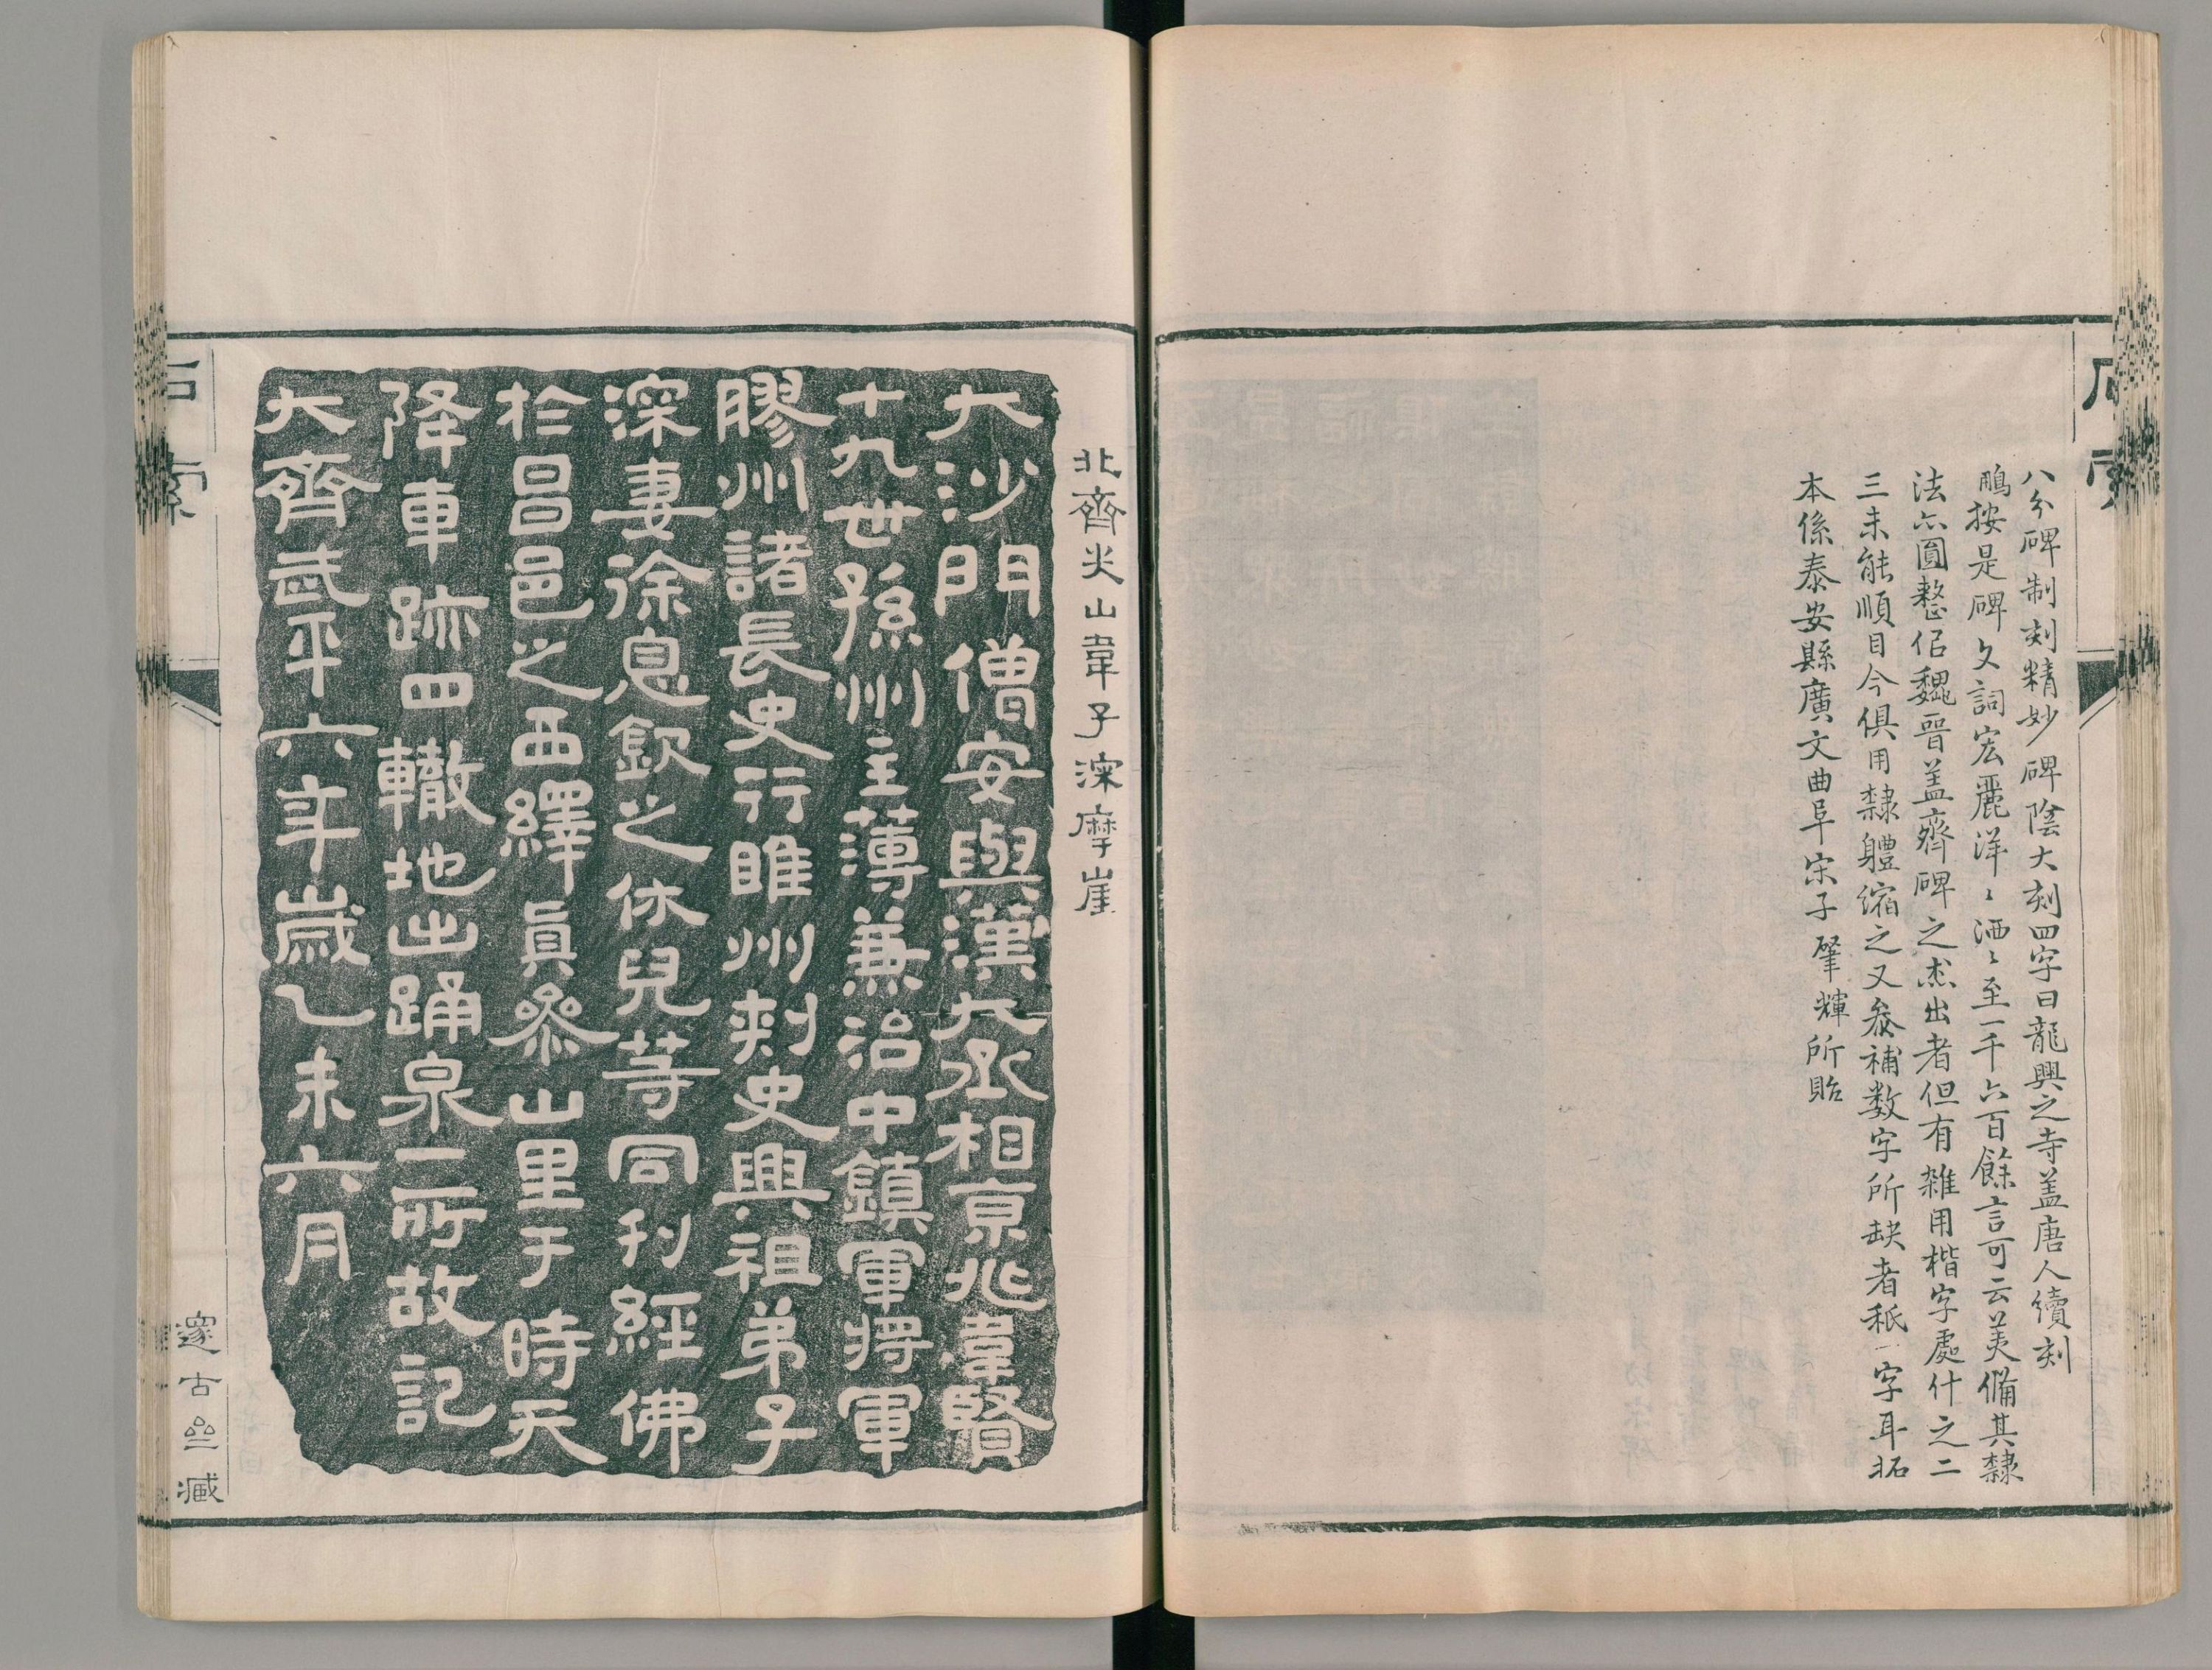 八分碑制刻精妙碑陰大刻四字曰龍興之寺蓋唐人續刻
鵰按是碑文詞宏麗洋〻洒〻至一千六百餘言可云美備其隸
法六圓整侣魏晉盖齊碑之杰出者但有雜用楷字處什之二
三未能順目今俱用隸軆縮之又叅補数字所缺者秖一字耳拓
本係泰安縣廣文曲阜宋子肈輝所貽
北齊尖山韋子深摩崖
大沙門僧安與漢大丞相京兆韋賢
十九世孫州主薄兼治中鎮軍將軍
膠州諸長史行睢州刾史興祖弟子
深妻徐息欽之休兒等同刊經佛
於昌邑之西繹眞叅山里于時天
降車跡四轍地出踊泉一所故記
大齊武平六年歲乙未六月
石索
邃古亝臧